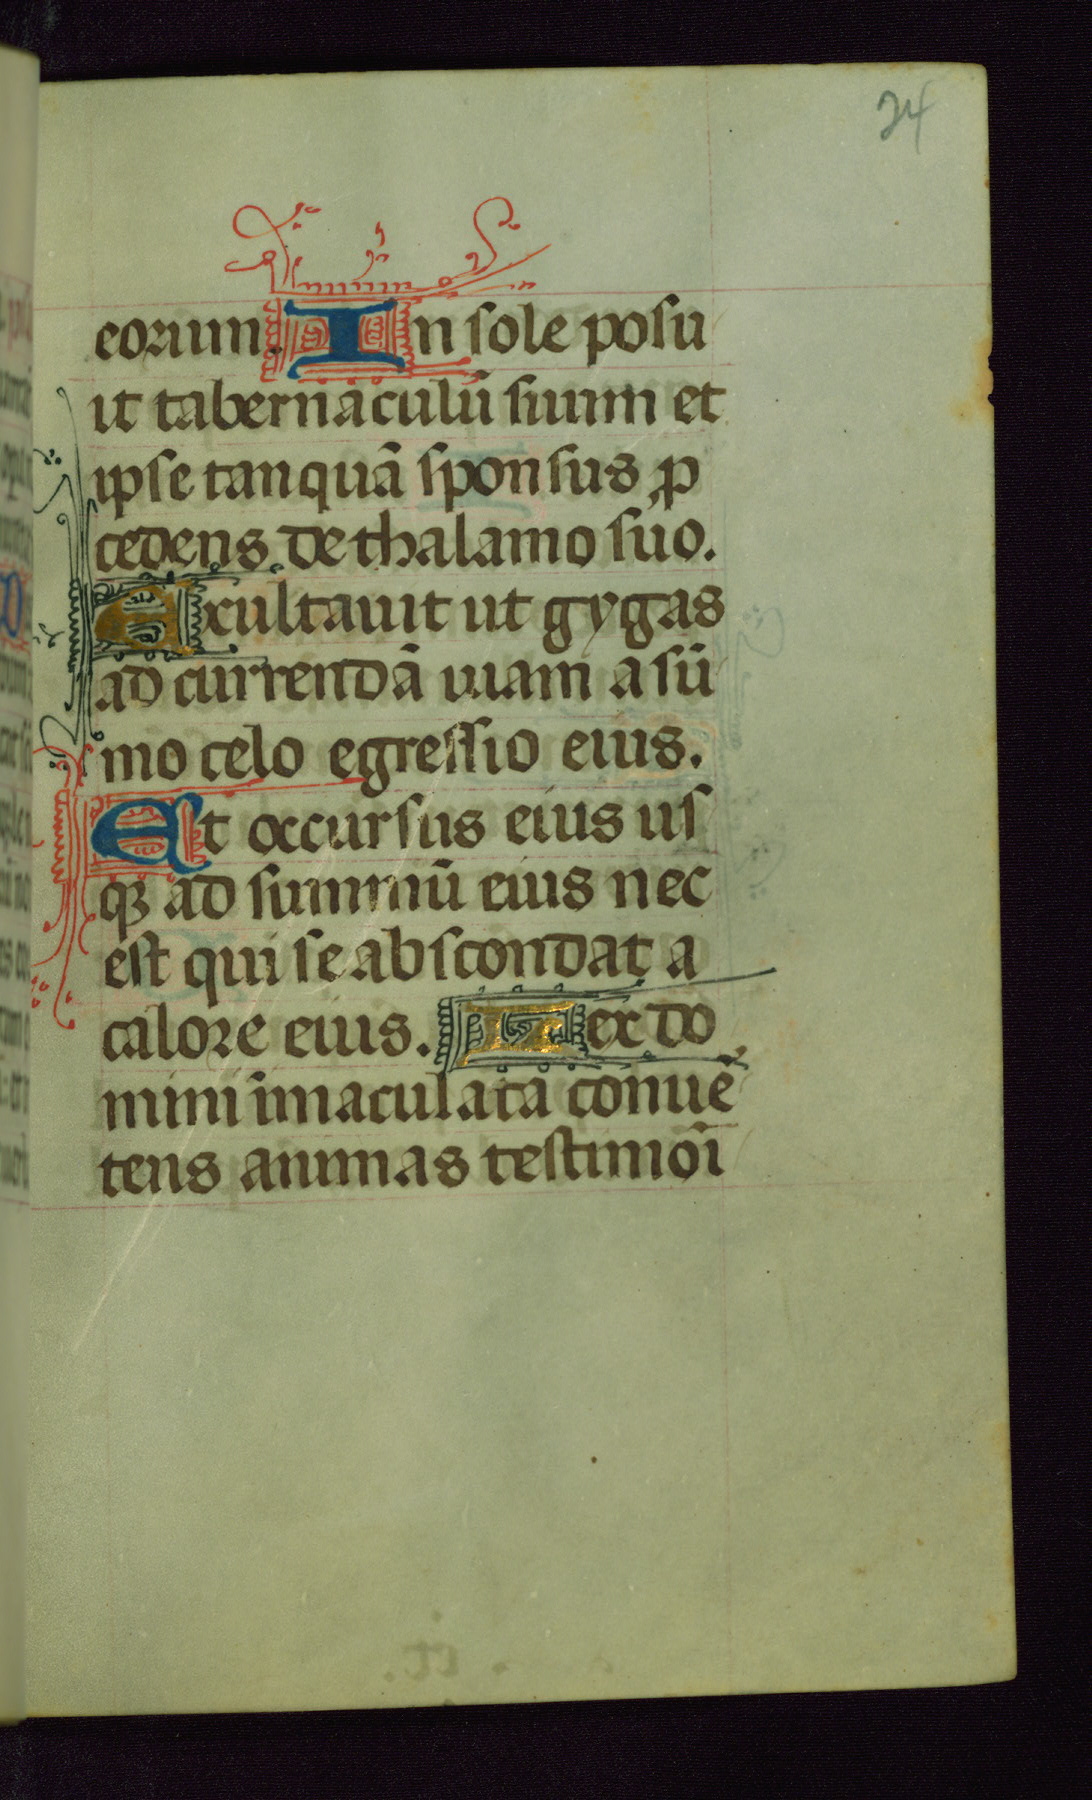 24
eorum. In sole posu
it tabernaculū suum et
ipse tanquā sponsus ꝓ
cedens de thalamo suo.
Excultauit ut gygas
ad currendā uiam a sū
mo celo egressio eius.
Et occursus eius us
qȝ ad summū eius nec
est qui se abscondat a
calore eius. Lex do
mini īmaculata conuē
tens animas testimoī